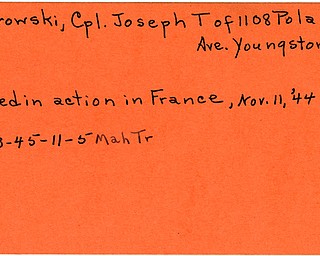 rowski, Cpl. Joseph T of 1108 Pola
Ave. Youngstow
ed in action in France, Nov. 11, '44
3-45-11-5 Mah Tr